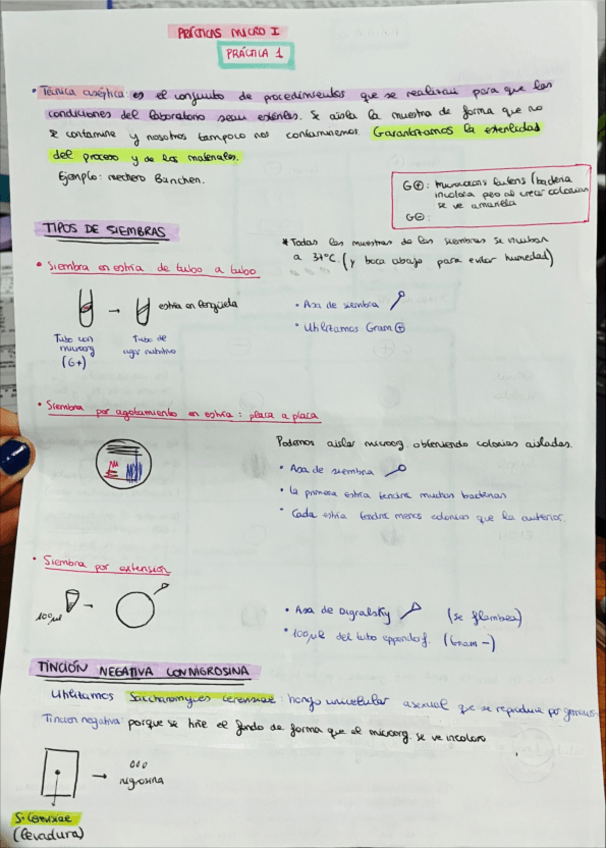 PRÁCTICAS MICRO I
PRÁCTICA 1
• Técnica aséptica: es el conjunto de procedimientos que se realizan para que las
condiciones del laboratorio sean estériles. Se aisla la muestra de forma que no
se contamine y nosotros tampoco nos contaminemos. Garantizamos la esterilidad
del proceso y de los materiales.
Ejemplo: mechero Bunchen.
G⊕: micrococcus luteus (bacteria
incolora pero al crear colonias
se ve amarilla
G⊖:
TIPOS DE SIEMBRAS
* Todas las muestras de las siembras se incuban
a 37°C. (y boca abajo para evitar humedad)
• Siembra en estria de tubo a tubo
→ estria en lengüeta
Tubo con
microorg
(G+)
Tubo de
agar nutritivo
• Asa de siembra
• Utilizamos Gram ⊕
• Siembra por agotamiento en estria: placa a placa
Podemos aislar microorg. obteniendo colonias aisladas.
• Asa de siembra
• la primera estria tendra muchas bacterias
• Cada estria tendra menos colonias que la anterior.
• Siembra por extension
100 µl →
• Asa de Digralsky (se flambea)
• 100 µl del tubo eppendof. (Gram -)
TINCIÓN NEGATIVA CON NIGROSINA
Utilizamos Saccharomyces cerevisiae: hongo unicelular asexual que se reproduce por
Tincion negativa: porque se tiñe el fondo de forma que el microorg. se ve incoloro
→ nigrosina
S. Cerevisiae
(levadura)